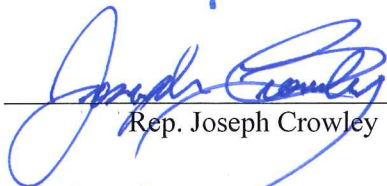 Joseph Crowley
Rep. Joseph Crowley